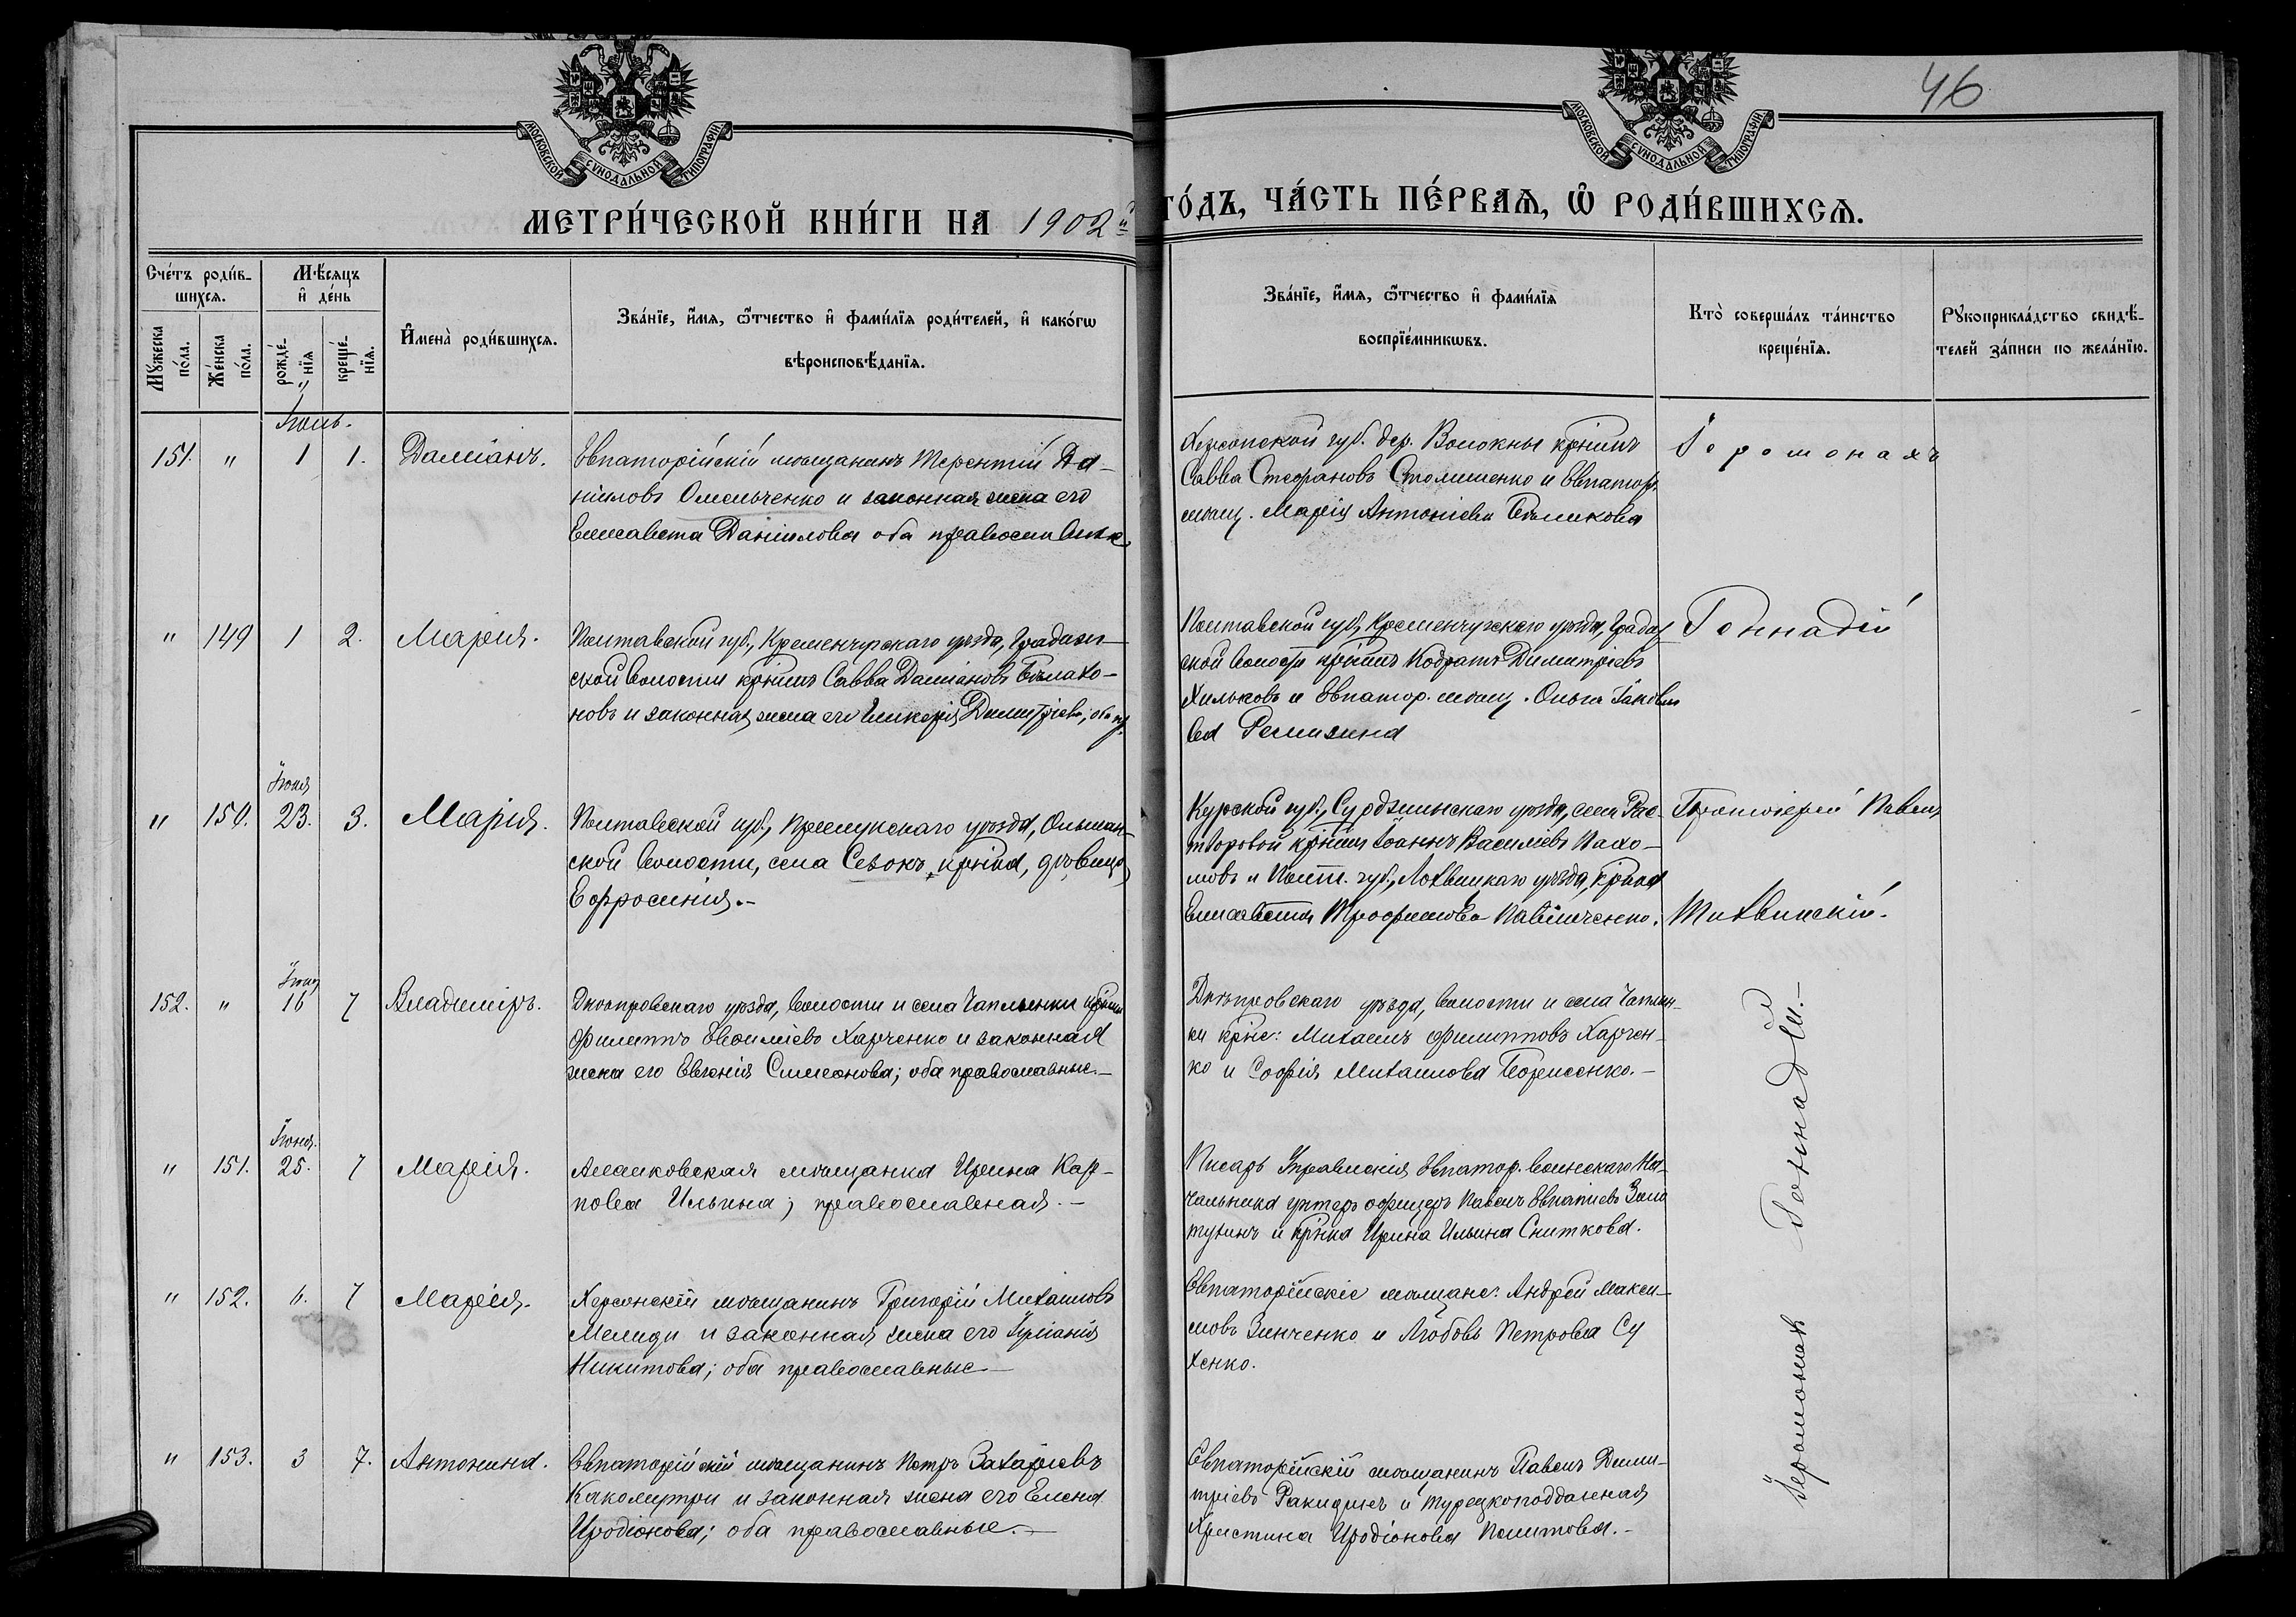 46
МОСКОВСКОЙ СѴНОДАЛЬНОЙ ТИПОГРАФІИ
МОСКОВСКОЙ СѴНОДАЛЬНОЙ ТИПОГРАФІИ
МЕТРИ́ЧЕСКОЙ КНИ́ГИ НА 1902й
ГО́ДЪ, ЧА́СТЬ ПЕ́РВАѦ, Ѡ҆ РОДИ́ВШИХСѦ.
Сче́тъ роди́в-
шихсѧ.
Мꙋжеска по́ла.
Же́нска по́ла.
Мѣ́сѧцъ
и҆ де́нь
рожде́-
нїѧ
креще́-
нїѧ.
И҆мена̀ роди́вшихсѧ.
Зва́нїе, и҆́мѧ, ѻ҆́тчество и҆ фамилїѧ роди́телей, и҆ како́гѡ
вѣроисповѣ́данїѧ.
Зва́нїе, и҆́мѧ, ѻ҆́тчество и҆ фами́лїѧ
воспрїе́мникѡвъ.
Кто̀ соверша́лъ та́инство
креще́нїѧ.
Рꙋкоприкла́дство свидѣ́-
телей за́писи по жела́нїю.
Іюль.
151. " 1 1. Даміанъ.
Евпаторійскій мѣщанинъ Терентій Да-
ніиловъ Омельченко и законная жена его
Елисавета Даніилова оба православные
Херсонской губ. дер. Волокны крѣнинъ
Савва Стефановъ Столишенко и Евпатор.
мѣщ. Марія Антоніева Бѣликова
Іеромонахъ
" 149 1 2. Марія.
Полтавской губ., Кременчугскаго уѣзда, Градиж-
ской волости крнинъ Савва Даміановъ Балахо-
новъ и законная жена его Гликерія Димитріева; оба пр.
Полтавской губ., Кременчугскаго уѣзда, Градиж
ской волости крнинъ Кодратъ Димитріевъ
Хильковъ и Евпатор. мѣщ. Ольга Іаковле
ва Ремизина
Геннадій
Іюня
" 150. 23. 3. Марія.
Полтавской губ., Прилукскаго уѣзда, Ольшан-
ской волости, села Севокъ, крнка, дѣвица
Евфросинія.-
Курской губ., Суджинскаго уѣзда, села Рас-
творовой крнинъ Іоаннъ Василіевъ Пахо-
мовъ и Полт. губ., Лохвицкаго уѣзда, крнка
Елисавета Трофимова Павличенко.
Протоіерей Павелъ
Тихвинскій.
Іюня
152. " 16 7 Владиміръ.
Днѣпровскаго уѣзда, волости и села Чаплынки крнинъ
Филиппъ Евѳиміевъ Харченко и законная
жена его Евгенія Симеонова; оба православные.-
Днѣпровскаго уѣзда, волости и села Чаплын-
ки крне: Михаилъ Филипповъ Харчен-
ко и Софія Михаилова Борисенко.-
Іеромонах Геннадій.-
Іюня.
" 151. 25. 7 Марія.
Алешковская мѣщанка Ирина Кар-
пова Ильина; православная.-
Писарь Управленія Евпатор. воинскаго На-
чальника унтеръ офицеръ Павелъ Евпатіевъ Золо
тухинъ и крнка Ирина Ильина Ситкова.
" 152. 6. 7 Марія.
Херсонскій мѣщанинъ Григорій Михаиловъ
Мелиди и законная жена его Іуліанія
Никитова; оба православные.-
Евпаторійскіе мѣщане: Андрей Макси-
мовъ Зинченко и Любовь Петрова Су
хенко.
" 153. 3 7. Антонина.
Евпаторійскій мѣщанинъ Петръ Захаріевъ
Каколитри и законная жена его Елена
Иродіонова; оба православные.-
Евпаторійскій мѣщанинъ Павелъ Дими-
тріевъ и турецкоподданная
Христина Иродіонова Политова.-